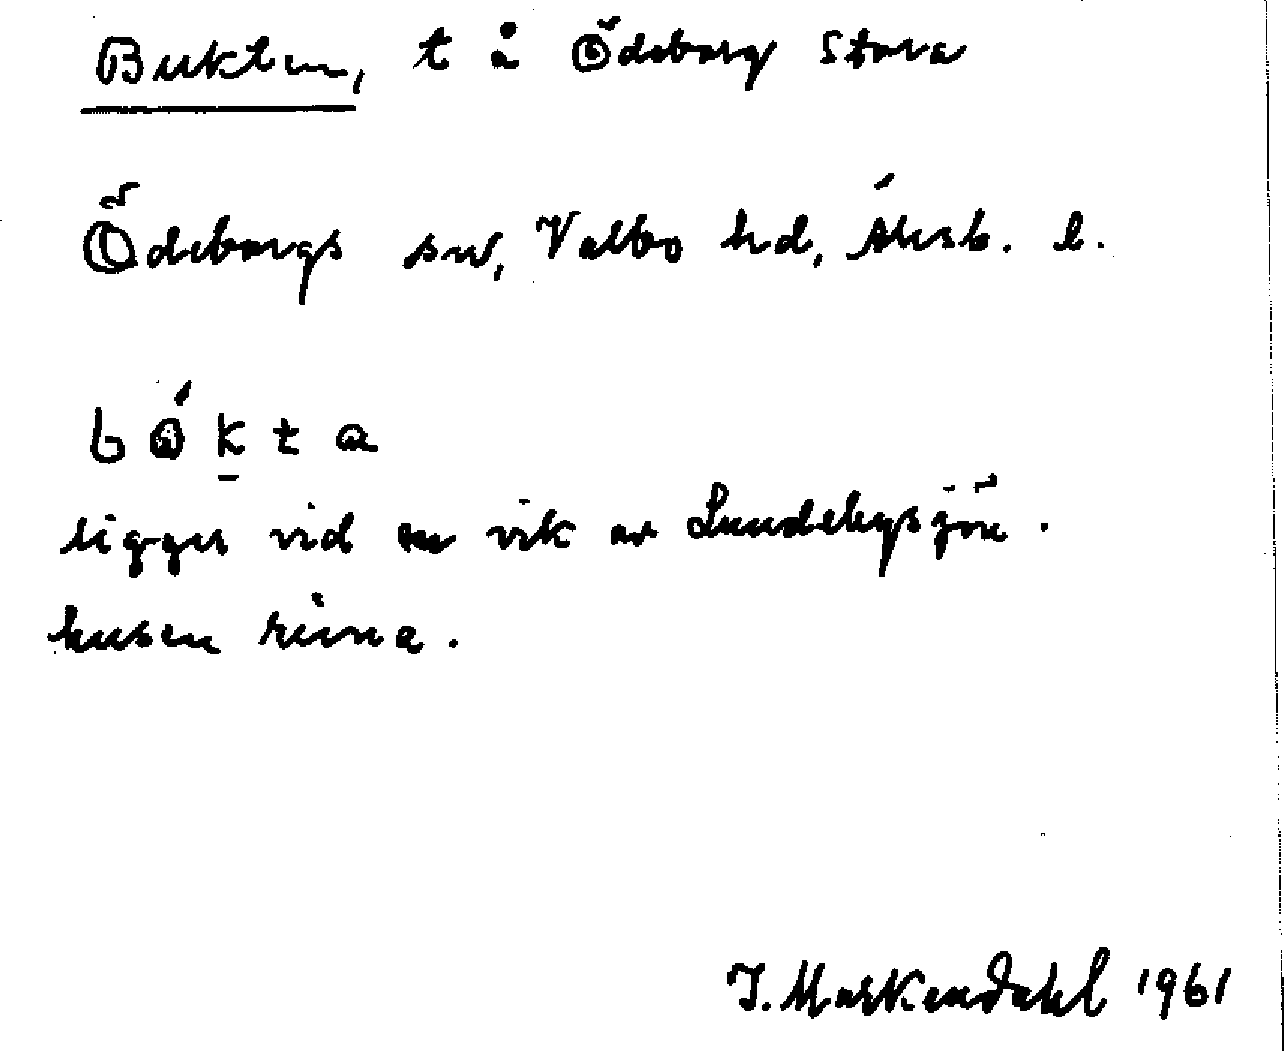 Bukten, t å Ödeborg Stora
Ödeborgs sn, Valbo hd, Älvsb. l.
bǻkta
ligger vid en vik av Lundebysjön.
husen rivna.
J. Markendahl 1961